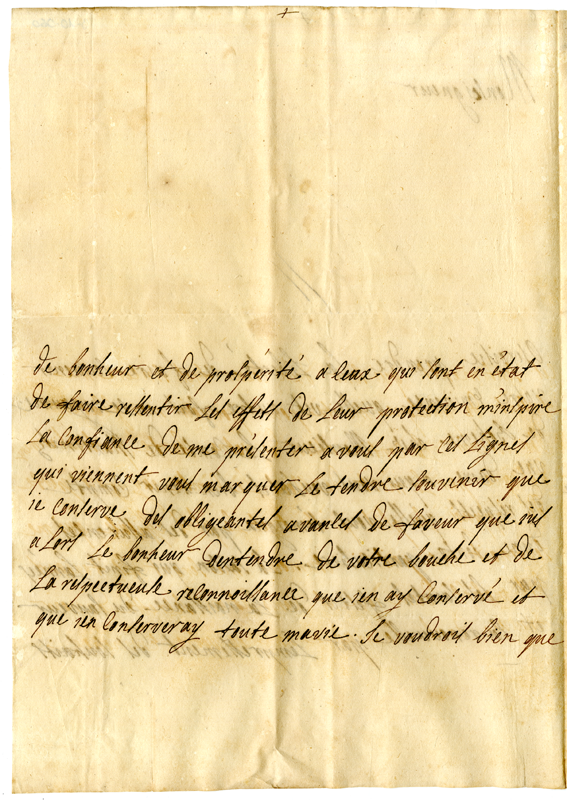 de bonheur et de prospérité a ceux qui sont en état
de faire ressentir les effets de leur protection m'inspire
la confiance de me présenter a vous par ces lignes
qui viennent vous marquer le tendre souvenir que
ie conserve des obligeantes avances de faveur que ius
alors le bonheur dentendre de votre bouche et de
la respectueuse reconnoissance que ien ay conservé et
que ien conserveray toute mavie. Je voudrois bien que